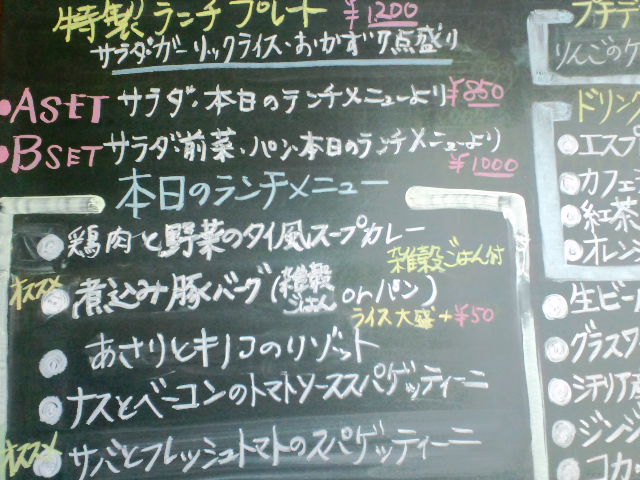 特製ランチプレート ¥1,200
サラダ・ガーリックライス・おかず7点盛り
●A SET サラダ・本日のランチメニューより ¥850
●B SET サラダ・前菜・パン・本日のランチメニューより
¥1000
本日のランチメニュー
鶏肉と野菜のタイ風スープカレー
雑穀ごはん付
オススメ 煮込み豚バーグ(雑穀ごはん orパン)
ライス大盛+¥50
あさりとキノコのリゾット
ナスとベーコンのトマトソーススパゲッティーニ
オススメ サバとフレッシュトマトのスパゲッティーニ
プチデ
りんごのケ
ドリン
エスプ
カフェ
紅茶
オレン
生ビー
グラスワ
シチリア産
ジンジ
コカ